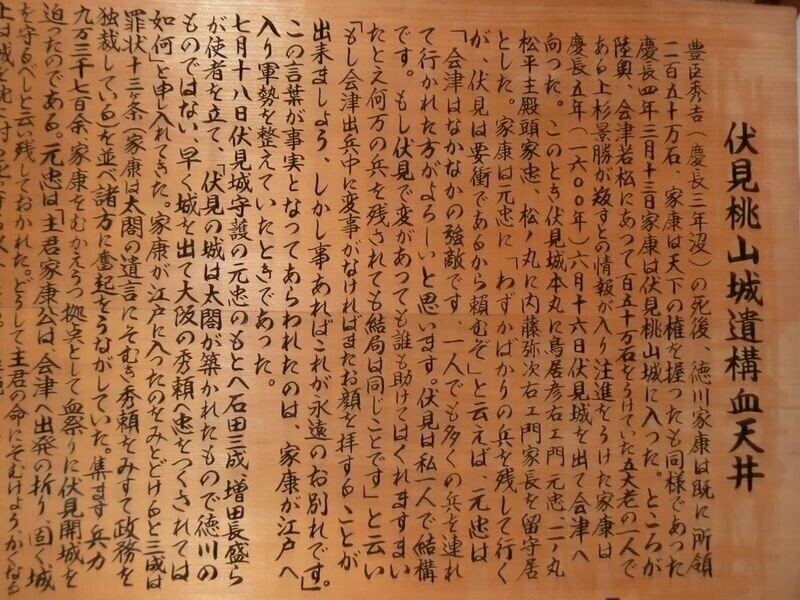 伏見桃山城遺構血天井
豊臣秀吉（慶長三年没）の死後、徳川家康は既に所領
二百五十万石、家康は天下の権を握ったも同様であった
慶長四年三月十三日家康は伏見桃山城に入った。ところが
陸奥、会津若松にあって百五十万石をうけていた五大老の一人で
ある上杉景勝が叛すとの情報が入り注進をうけた家康は
慶長五年（一六〇〇年）六月十六日伏見城を出て会津へ
向った。このとき伏見城本丸に鳥居彦右ェ門元忠、二ノ丸
松平主殿頭家忠、松ノ丸に内藤弥次右ェ門家長を留守居
とした。家康は元忠に「わずかばかりの兵を残して行く
が、伏見は要衝であるから頼むぞ」と云えば、元忠は
「会津はなかなかの強敵です、一人でも多くの兵を連れ
て行かれた方がよろしいと思います。伏見は私一人で結構
です。もし伏見で変があっても誰も助けてはくれますまい
たとえ何万の兵を残されても結局は同じことです」と云い
「もし会津出兵中に変事がなければまたお顔を拝することが
出来ましよう、しかし事あればこれが永遠のお別れです」
この言葉が事実となってあらわれたのは、家康が江戸へ
入り軍勢を整えていたときであった。
七月十八日伏見城守護の元忠のもとへ石田三成、増田長盛ら
が使者を立て、「伏見の城は太閤が築かれたもので徳川の
ものではない、早く城を出て大阪の秀頼へ忠をつくされては
如何」と申し入れてきた。家康が江戸に入ったのをみとどけると三成は
罪状十三ヶ条（家康は太閤の遺言にそむき秀頼をみすて政務を
独裁している）を並べ諸方に奮起をうながしていた。集ます兵力
九万三千七百余、家康をむかえうつ拠点として血祭りに伏見開城を
迫ったのである。元忠は「主君家康公は、会津へ出発の折り、固く城
を守るべしと云い残しておかれた。どうして主君の命にそむけようか、かくなる
上は城を枕に討